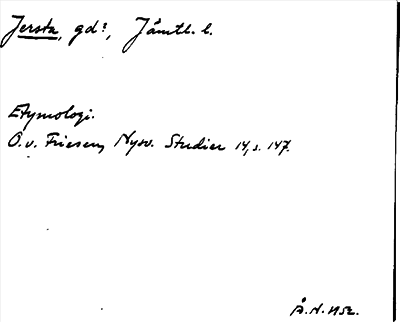 Jersta, gd?, Jämtl. l.
Etymologi.
O. v. Friesen, Nysv. Studier 14, s. 147.
Å. N. 1952.